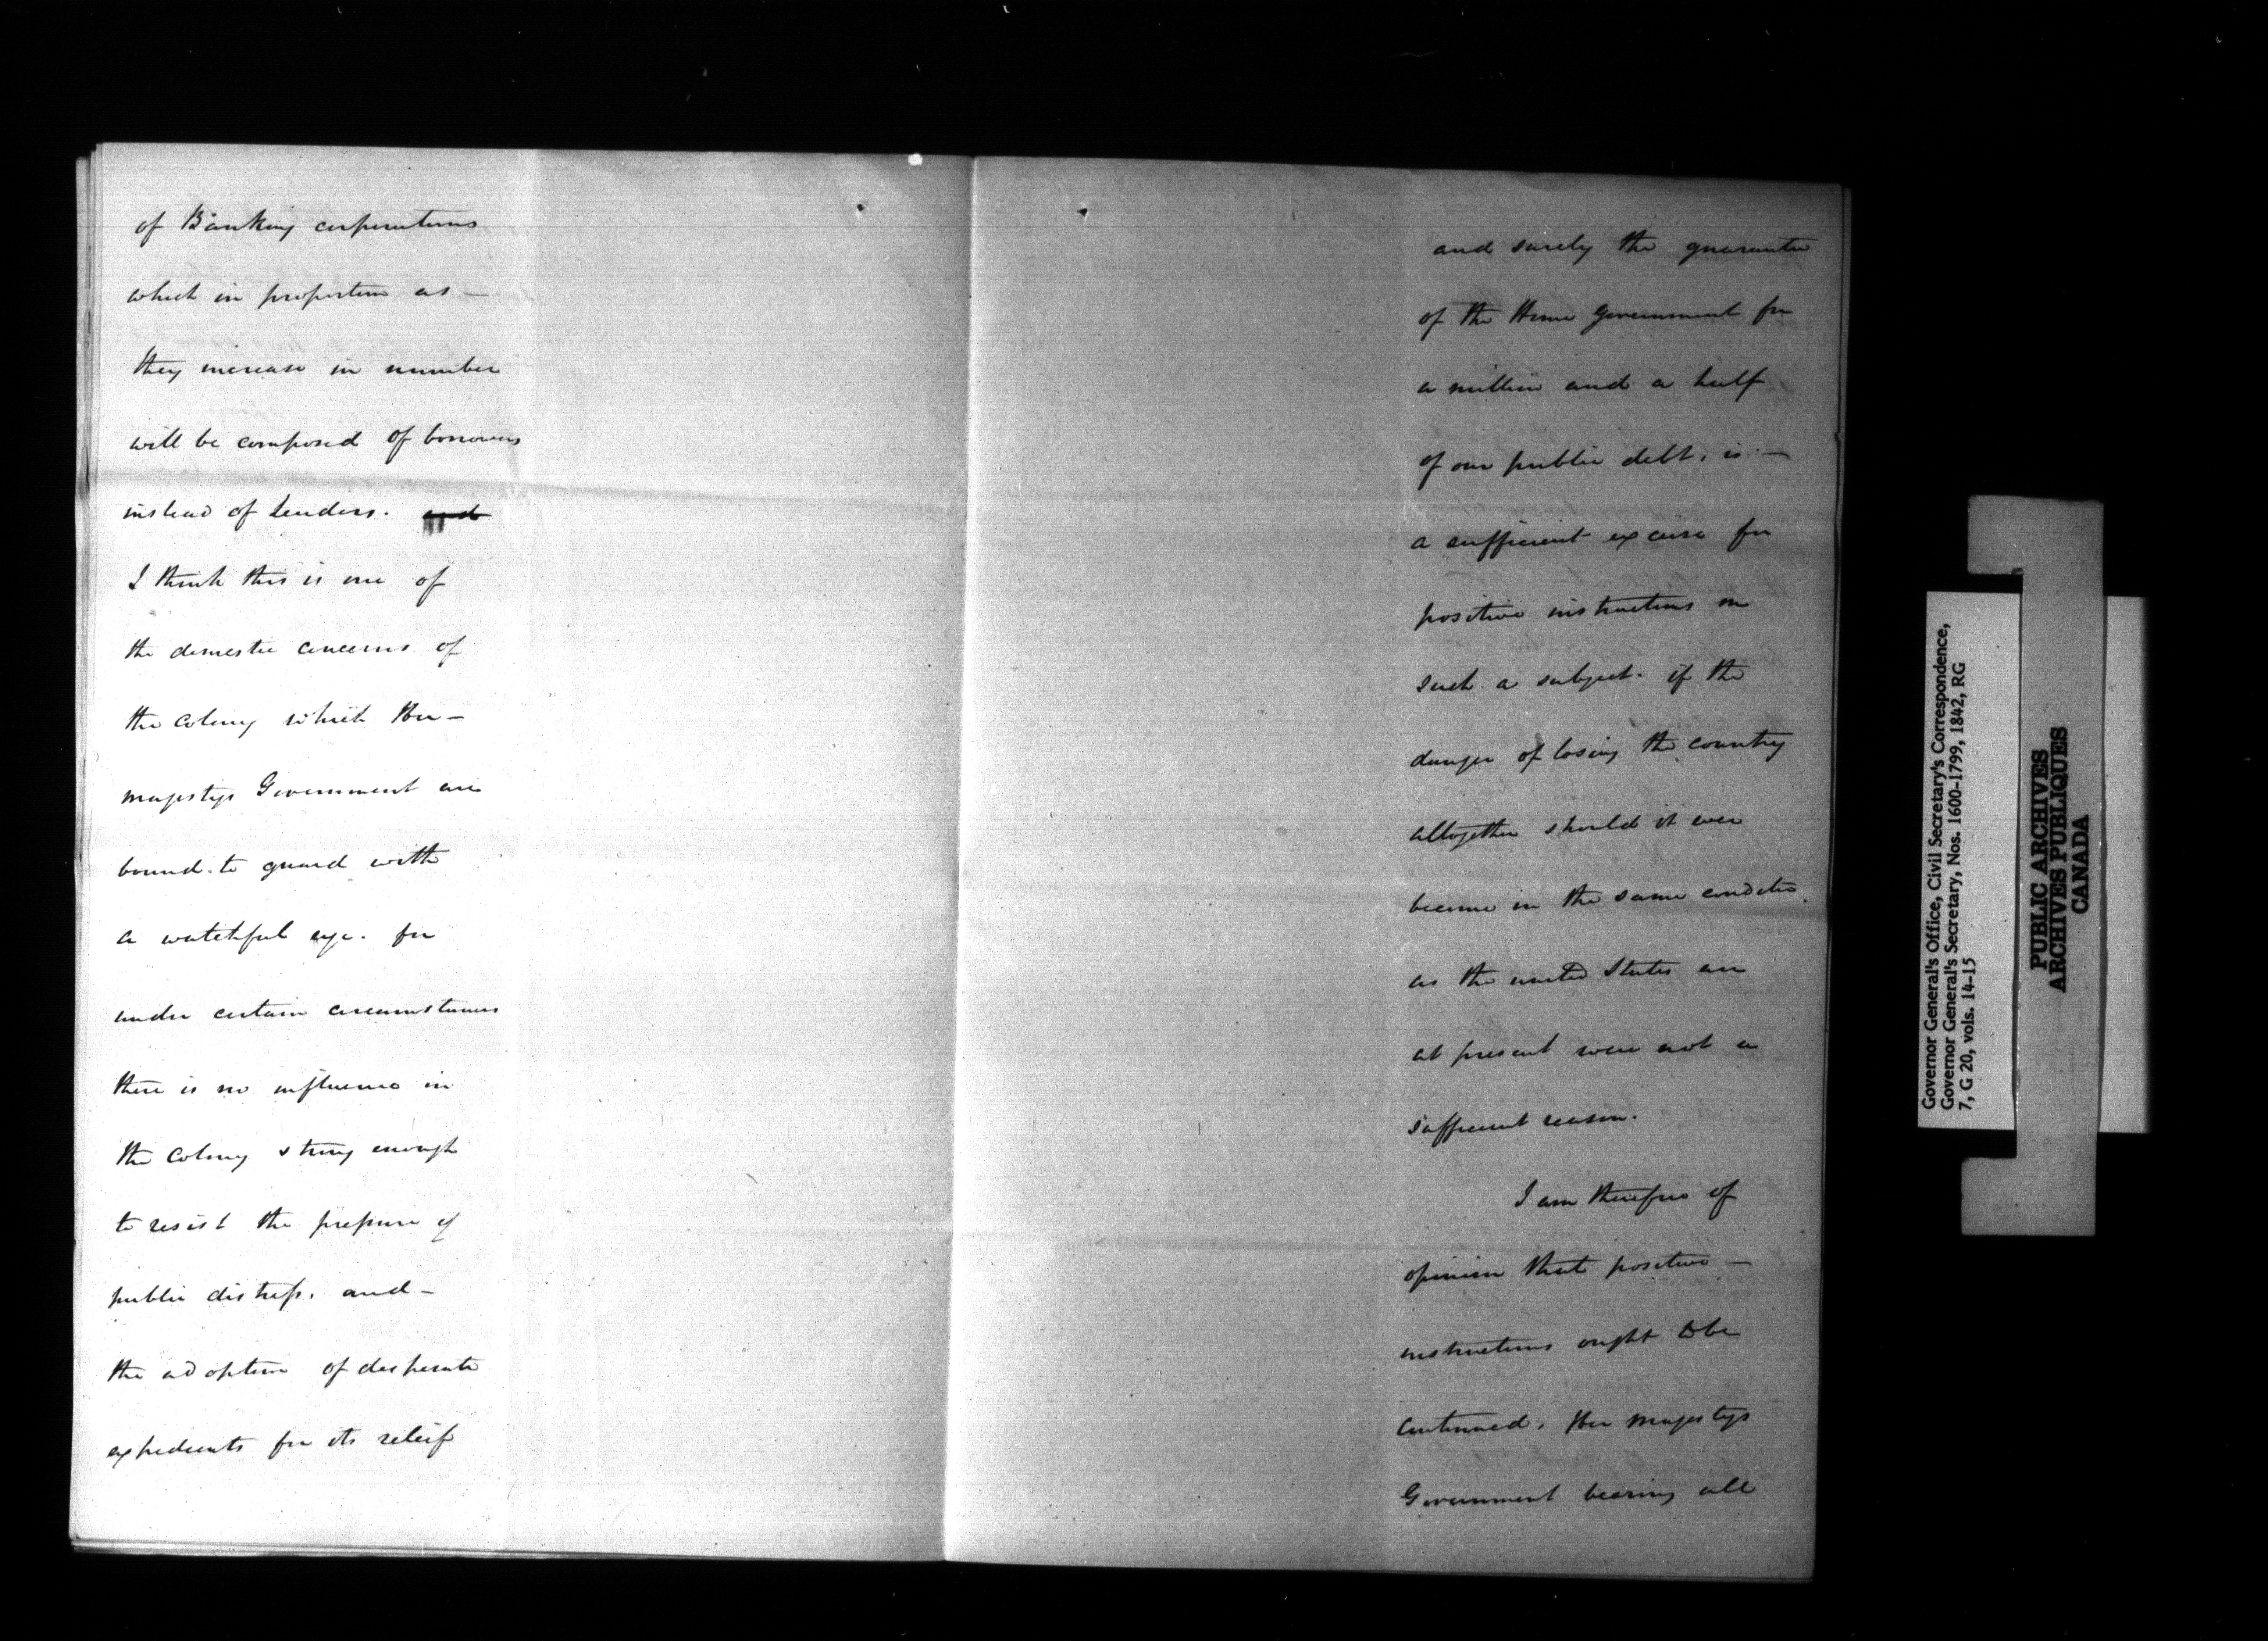 of Banking corporations
which in proportion as —
they increase in number
will be composed of borrowers
instead of Lenders. and
I think this is one of
the domestic concerns of
the Colony which Her —
Majestys Government are
bound to guard with
a watchful eye. for
under certain circumstances
there is no influence in
the Colony strong enough
to resist the pressure of
public distress, and —
the adoption of desperate
expedients for its releif
and surely the guarantee
of the Home Government for
a million and a half
of our public debt, is —
a sufficient excuse for
positive instructions on
such a subject. if the
danger of losing the country
altogether should it ever
become in the same condition
as the united States are
at present were not a
sufficient reason.
I am therefore of
opinion that positive —
instructions ought to be
continued, Her Majestys
Government bearing all
Governor General's Office, Civil Secretary's Correspondence,
Governor General's Secretary, Nos. 1600-1799, 1842, RG
7, G 20, vols. 14-15
PUBLIC ARCHIVES
ARCHIVES PUBLIQUES
CANADA